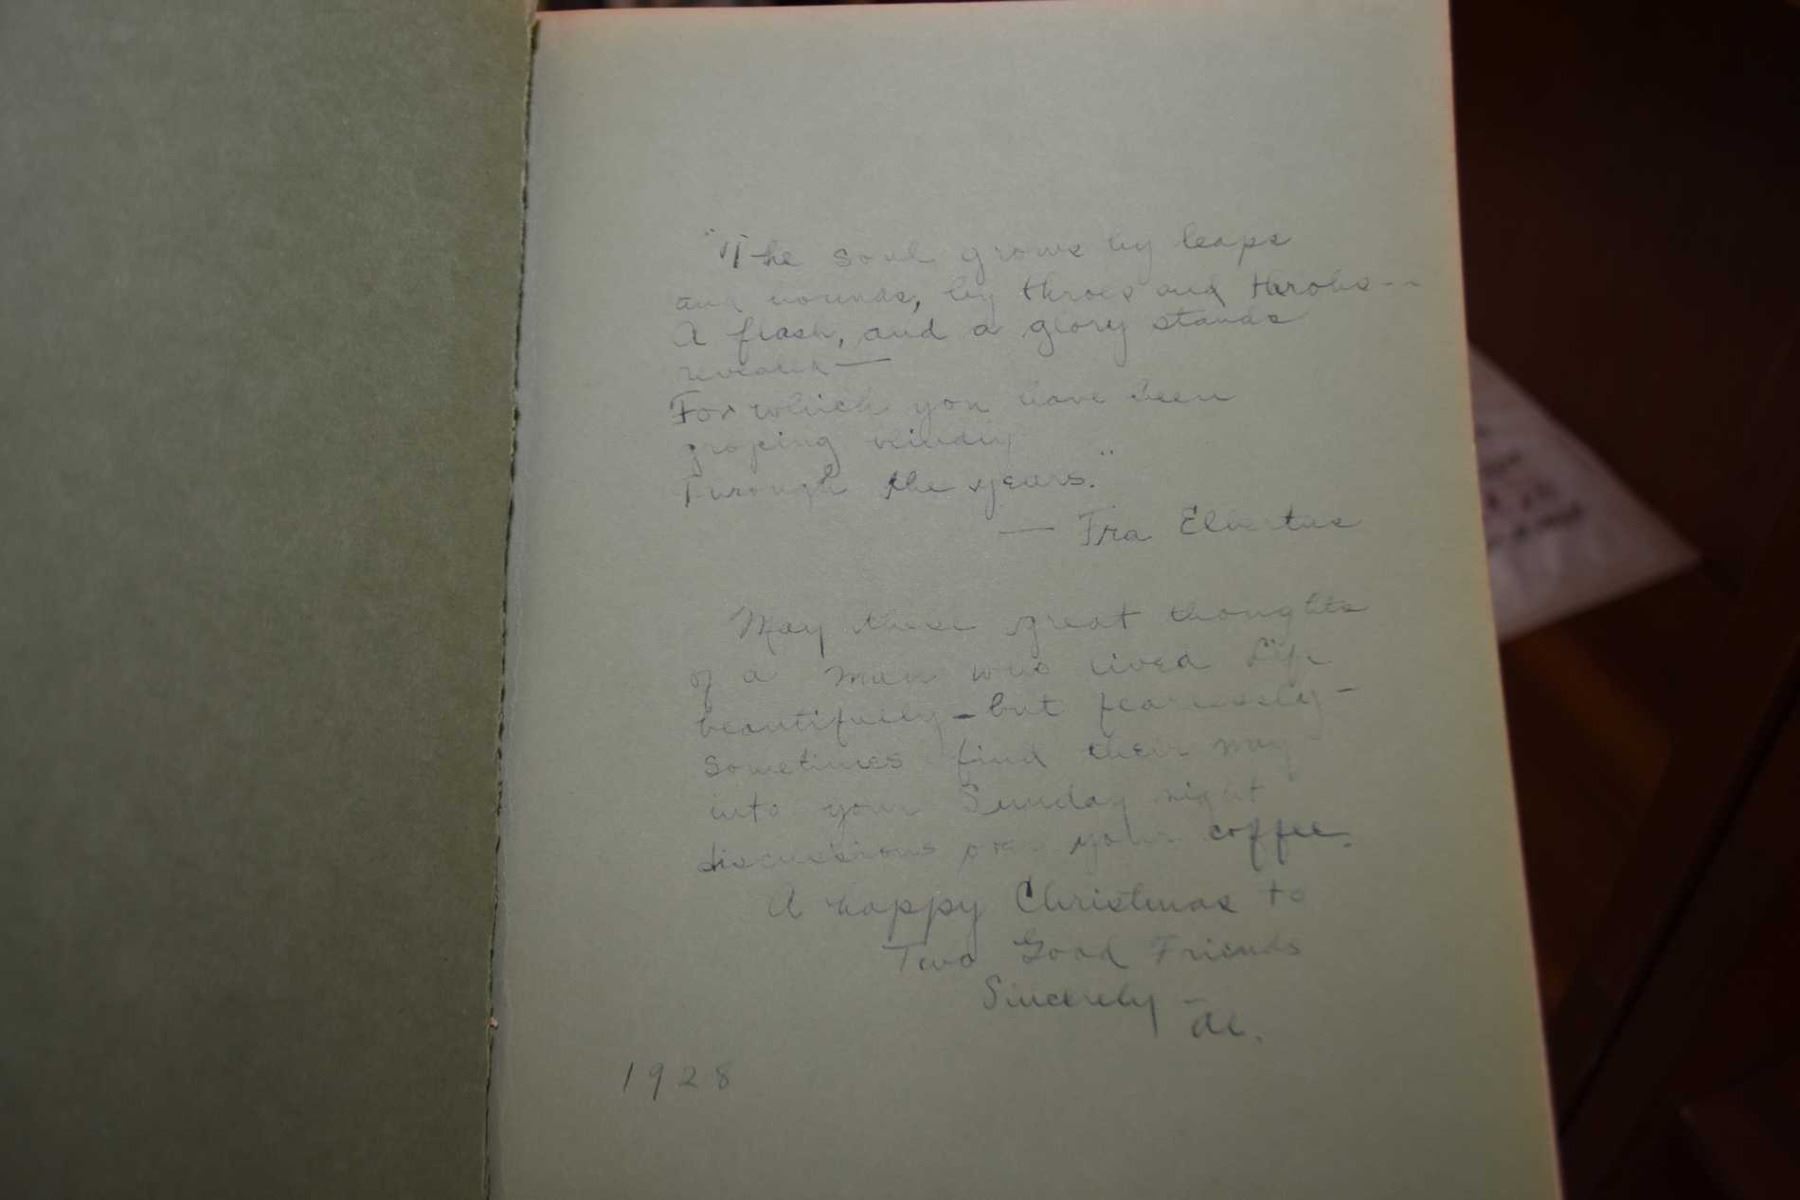 "The soul grows by leaps
and bounds, by throes and throbs--
A flash, and a glory stands
revealed—
For which you have been
groping blindly
Through the years."
— Fra Elbertus
May these great thoughts
of a man who lived Life
beautifully - but fearlessly -
sometimes find their way
into your Sunday night
discussions your coffee.
A Happy Christmas to
Two Good Friends
Sincerely -
Al.
1928